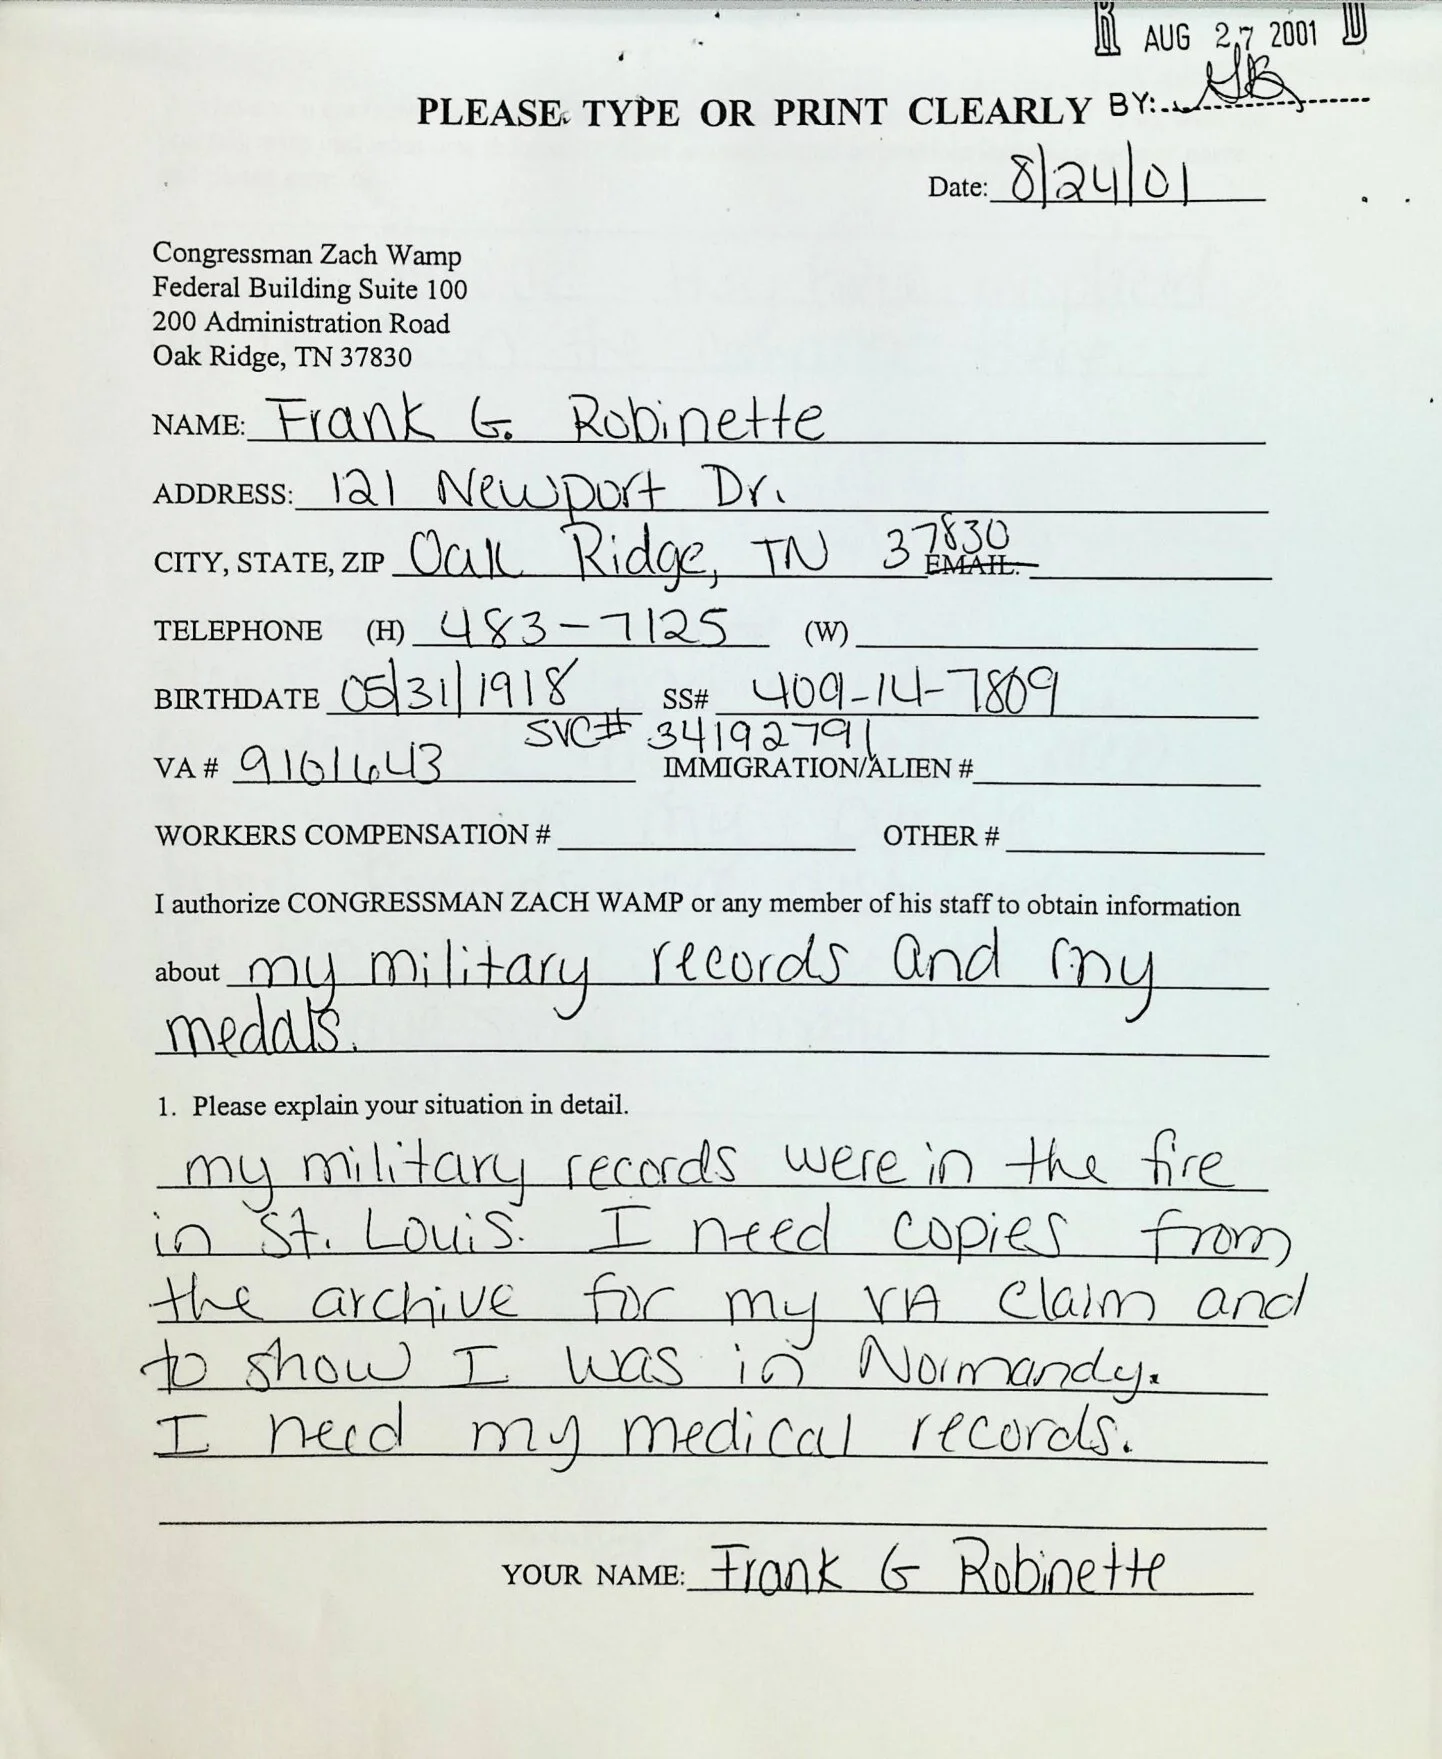 R AUG 27 2001 D
PLEASE TYPE OR PRINT CLEARLY BY:
Date: 8/24/01
Congressman Zach Wamp
Federal Building Suite 100
200 Administration Road
Oak Ridge, TN 37830
NAME: Frank G. Robinette
ADDRESS: 121 Newport Dr.
CITY, STATE, ZIP Oak Ridge, TN 37830 EMAIL:
TELEPHONE (H) 483-7125 (W)
BIRTHDATE 05/31/1918 SS# 409-14-7809
SVC# 34192791
VA # 9161643 IMMIGRATION/ALIEN #
WORKERS COMPENSATION # OTHER #
I authorize CONGRESSMAN ZACH WAMP or any member of his staff to obtain information
about my military records and my
medals.
1. Please explain your situation in detail.
my military records were in the fire
in St. Louis. I need copies from
the archive for my VA claim and
to show I was in Normandy.
I need my medical records.
YOUR NAME: Frank G Robinette